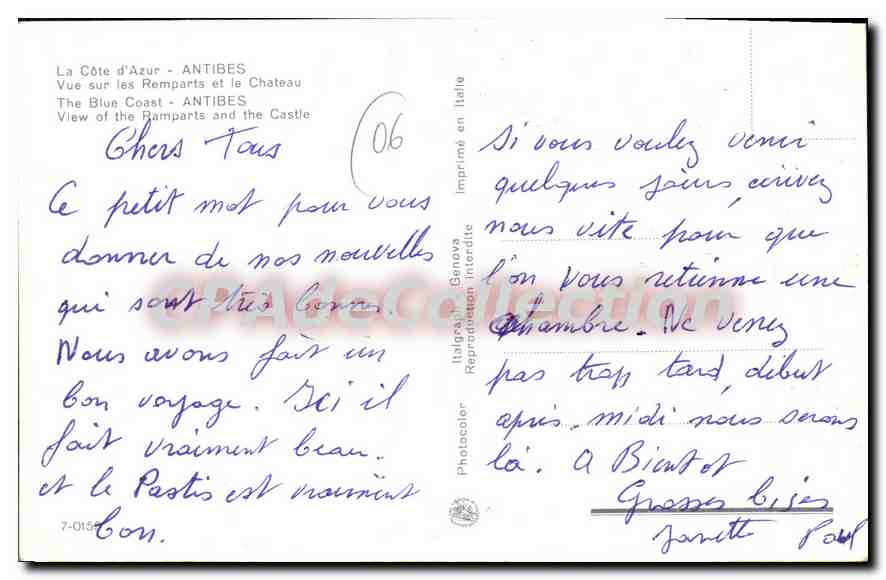 La Côte d'Azur - ANTIBES
Vue sur les Remparts et le Chateau
The Blue Coast - ANTIBES
View of the Ramparts and the Castle
06
Chers Tous
Ce petit mot pour vous
donner de nos nouvelles
qui sont très bonnes.
Nous avons fait un
bon voyage. Ici il
fait vraiment beau.
et le Pastis est vraiment
bon.
7-015
Photocolor Italgraph Genova Imprimé en Italie
Reproduction interdite
CPAdeCollection
Si vous voulez venir
quelques jours, écrivez
nous vite pour que
l'on vous retienne une
chambre. Ne venez
pas trop tard, début
après-midi nous serons
là. A Bientot
Grosses bises
Janette Paul